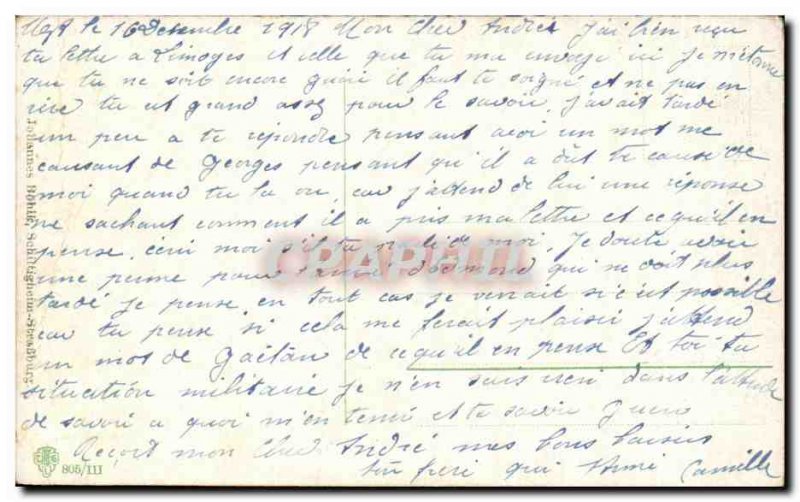 le 16 Decembre 1918 Mon Cher André J'ai bien reçu
ta lettre a Limoges et celle que tu ma envoyé ici je m'étonne
que tu ne soit encore guéri il faut te soigné et ne pas en
rire tu est grand assez pour le savoir. J'avait tardé
un peu a te répondre pensant avoi un mot me
causant de Georges pensant qu'il a dût te causé de
moi quand tu la vu, car j'attend de lui une réponse
ne sachant comment il a pris ma lettre et ce qu'il en
pense, ceri moi s'il tu de moi. Je doute avoir
une perme pour qui ne doit plus
tardé je pense, en tout cas je venait si c'est possible
car tu pense si cela me ferait plaisir j'attend
un mot de Gaëtan de ce qu'il en pense Et toi ta
situation militaire je n'en sais rien dans l'attende
de savoir a quoi m'en tenir et ta savoir
Reçoit mon cher André mes bons baisers
ton frere qui t'aime Camille
CPAPHIL
Johannes Schiltigheim-Strassburg.
805/III